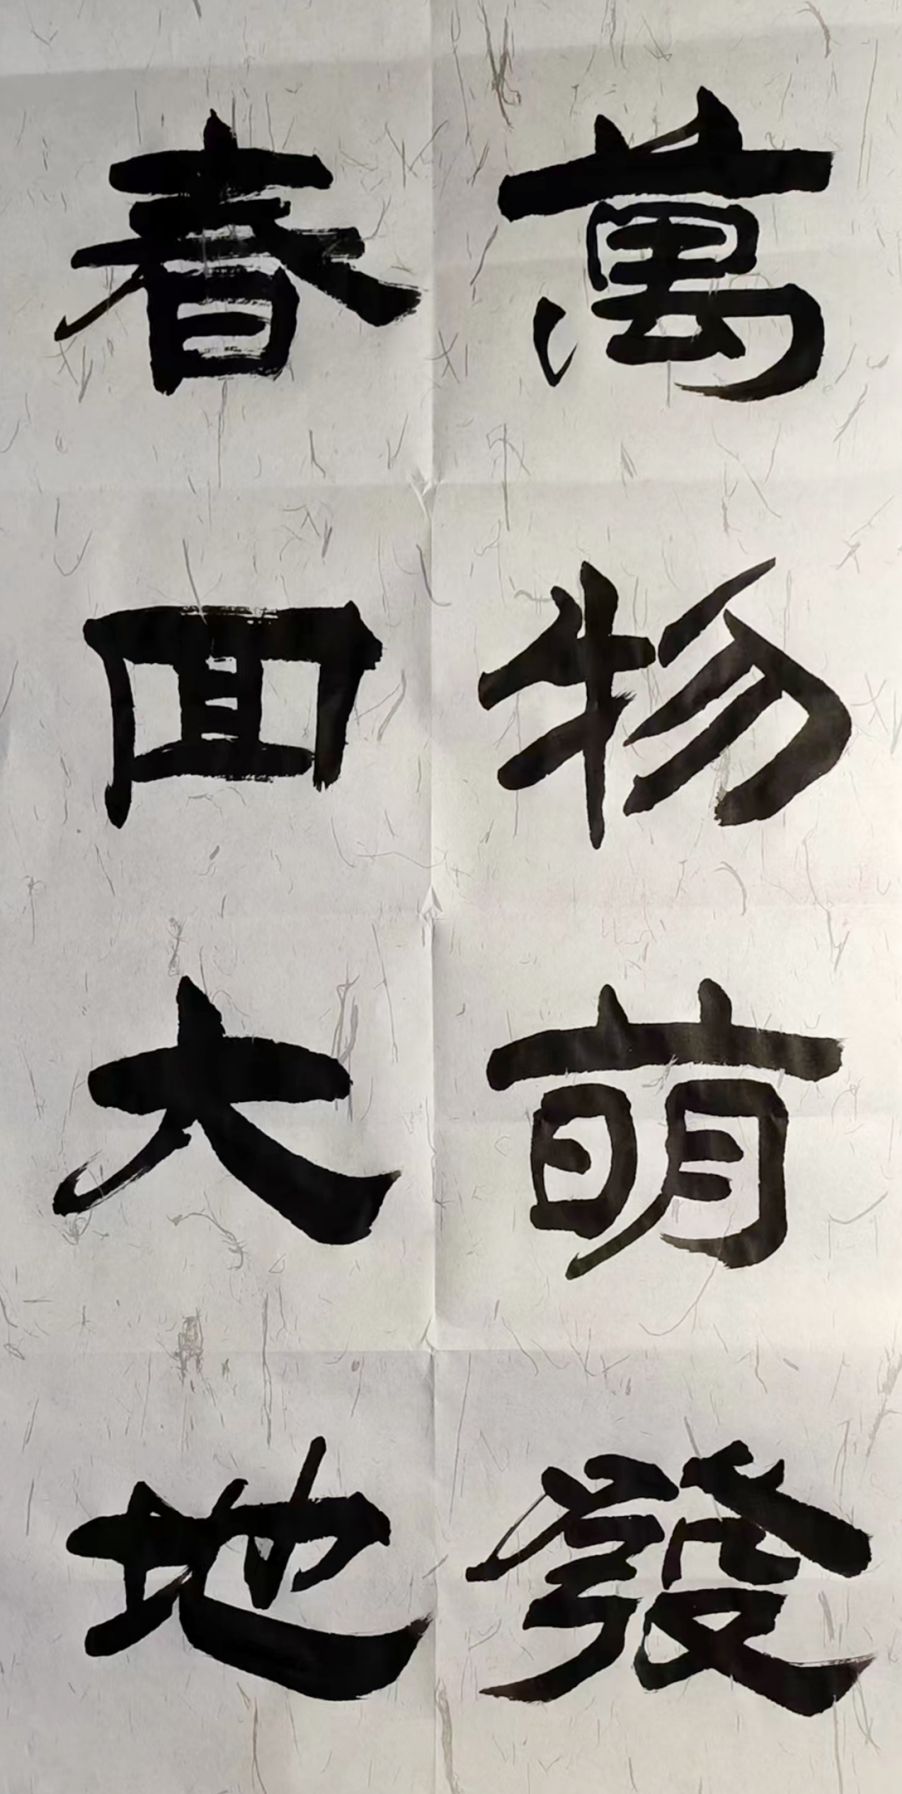 萬物萌發
春回大地